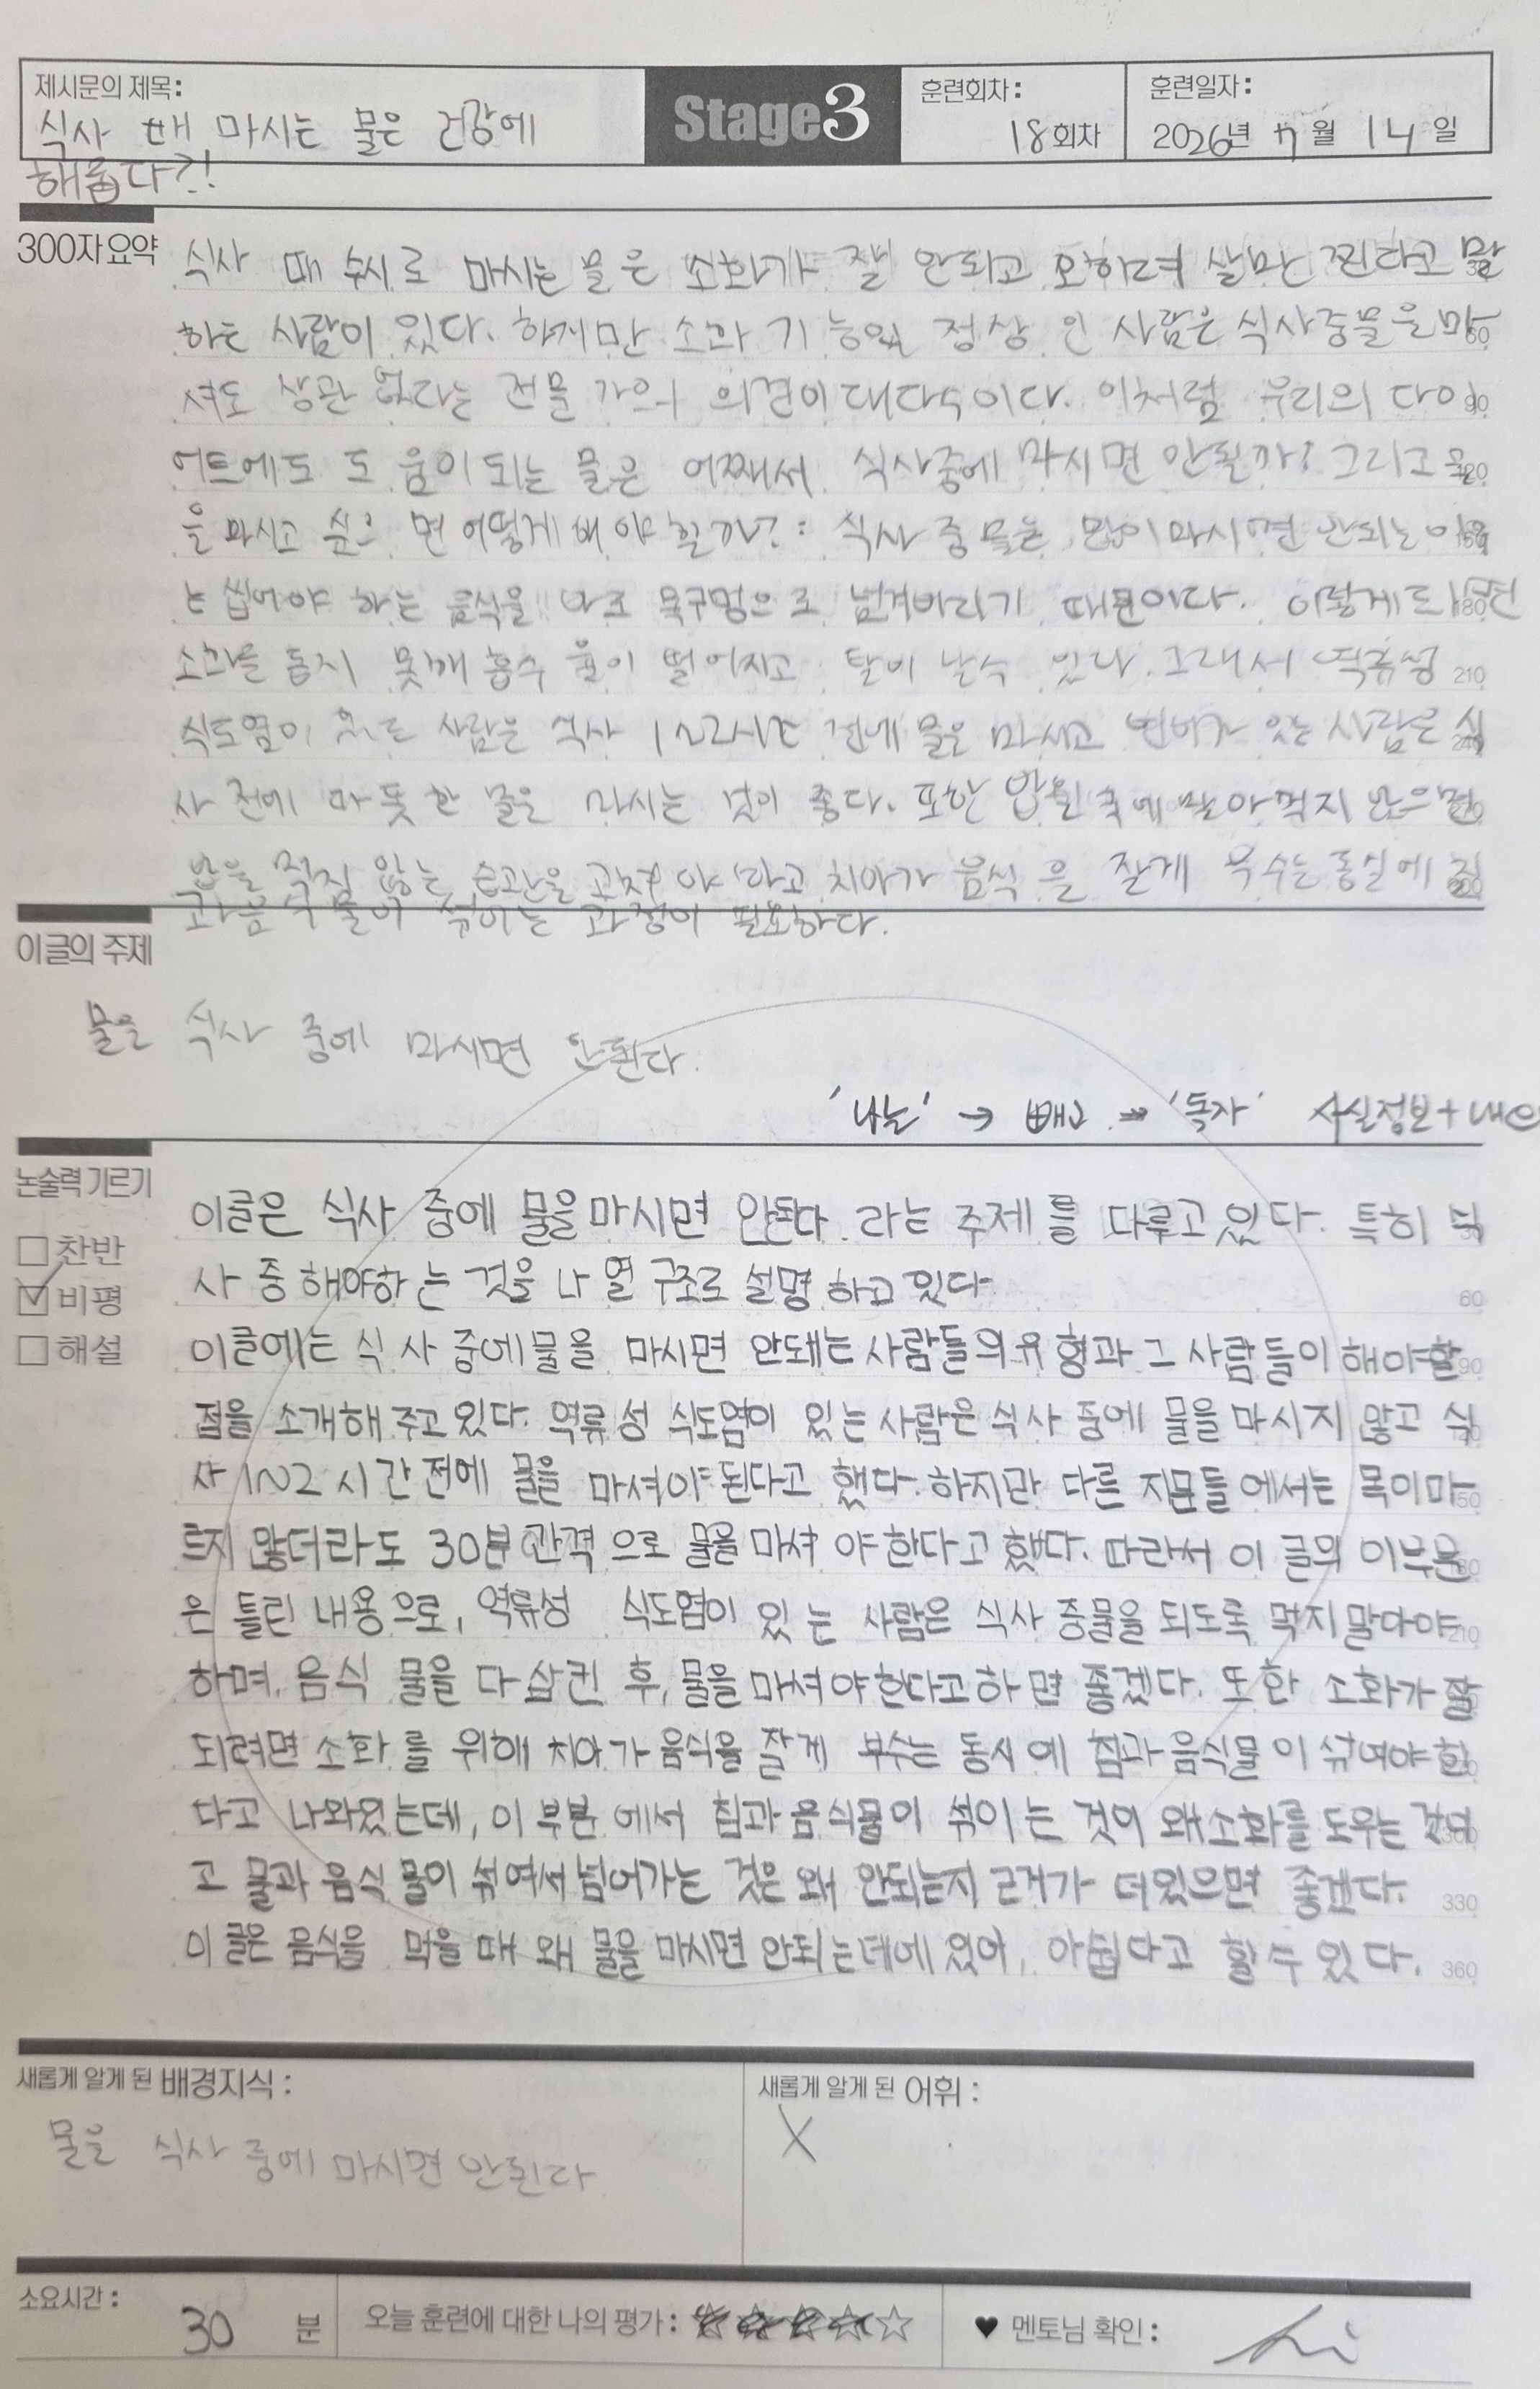 제시문의 제목:
식사 때 마시는 물은 건강에
해롭다?!
Stage3
훈련회차:
18회차
훈련일자:
2026년 7월 14일
300자요약
식사 때 수시로 마시는 물은 소화가 잘 안되고 오히려 살만 찐다고 말
하는 사람이 있다. 하지만 소화 기능이 정상 인 사람은 식사중물을마
셔도 상관 없다는 전문 가의 의견이대다수이다. 이처럼 우리의 다이
어트에도 도 움이 되는 물은 어째서 식사중에 마시면 안될까? 그리고 물
을 마시고 싶으 면 어떻게 해 야 할까? : 식사 중 물을 많이 마시면 안되는 이유
는 씹어야 하는 음식을 바로 목구멍으로 넘겨버리기 때문이다. 이렇게 되면
소화를 동시 못해 흡수 율이 떨어지고 탈이 날수 있다. 그래서 역류성
식도염이 있는 사람은 식사 1~2시간 전에 물을 마시고 변비가 있는 사람은 식
사 전에 따뜻한 물을 마시는 것이 좋다. 또한 밥을 국에 말아먹지 않으면
밥을 먹지 않는 습관을 고쳐야 하고 치아가 음식 을 잘게 부수는 동시에 침
과 음식물이 섞이는 과정이 필요하다.
이글의 주제
물을 식사 중에 마시면 안된다.
'나는' → 빼고 → '독자' 사실정보+내
논술력기르기
찬반
비평
해설
이글은 식사 중에 물을마시면 안된다. 라는 주제 를 다루고있다. 특히 식
사 중 해야하 는 것을 나 열 구조로 설명 하고 있다
이글에는 식 사 중에물을 마시면 안돼는 사람들의유형과 그 사람들이해야할
점을 소개해 주고있다. 역류성 식도염이 있는 사람은 식사 중에 물을마시지 않고 식
사 1~2시간 전에 물을 마셔야 된다고 했다. 하지만 다른 지문들 에서는 목이마
르지 않더라도 30분 간격 으로 물을 마셔 야 한다고 했다. 따라서 이 글의 이부분
은 틀린 내용으로, 역류성 식도염이 있 는 사람은 식사 중물을 되도록 먹지말아야
하며, 음식 물을 다 삼킨 후, 물을 마셔 야한다고하 면 좋겠다. 또한 소화가 잘
되려면 소화 를 위해 치아 가 음식을 잘게 부수는 동시 에 침과 음식물 이 섞여야 한
다고 나와있는데, 이 부분 에서 침과 음식물이 섞이 는 것이 왜소화를 도우는 것이
고 물과 음식 물이 섞여서 넘어가는 것은 왜 안되는지 근거가 더있으면 좋겠다.
이 글은 음식을 먹을 때 왜 물을 마시면 안되는데에 있어, 아쉽다고 할수 있다.
30
60
90
150
180
210
240
300
330
360
새롭게 알게 된 배경지식 :
물을 식사 중에 마시면 안된다
새롭게 알게 된 어휘 :
X
소요시간 :
30 분
오늘 훈련에 대한 나의 평가 : ☆☆☆☆☆
♥ 멘토님 확인 :